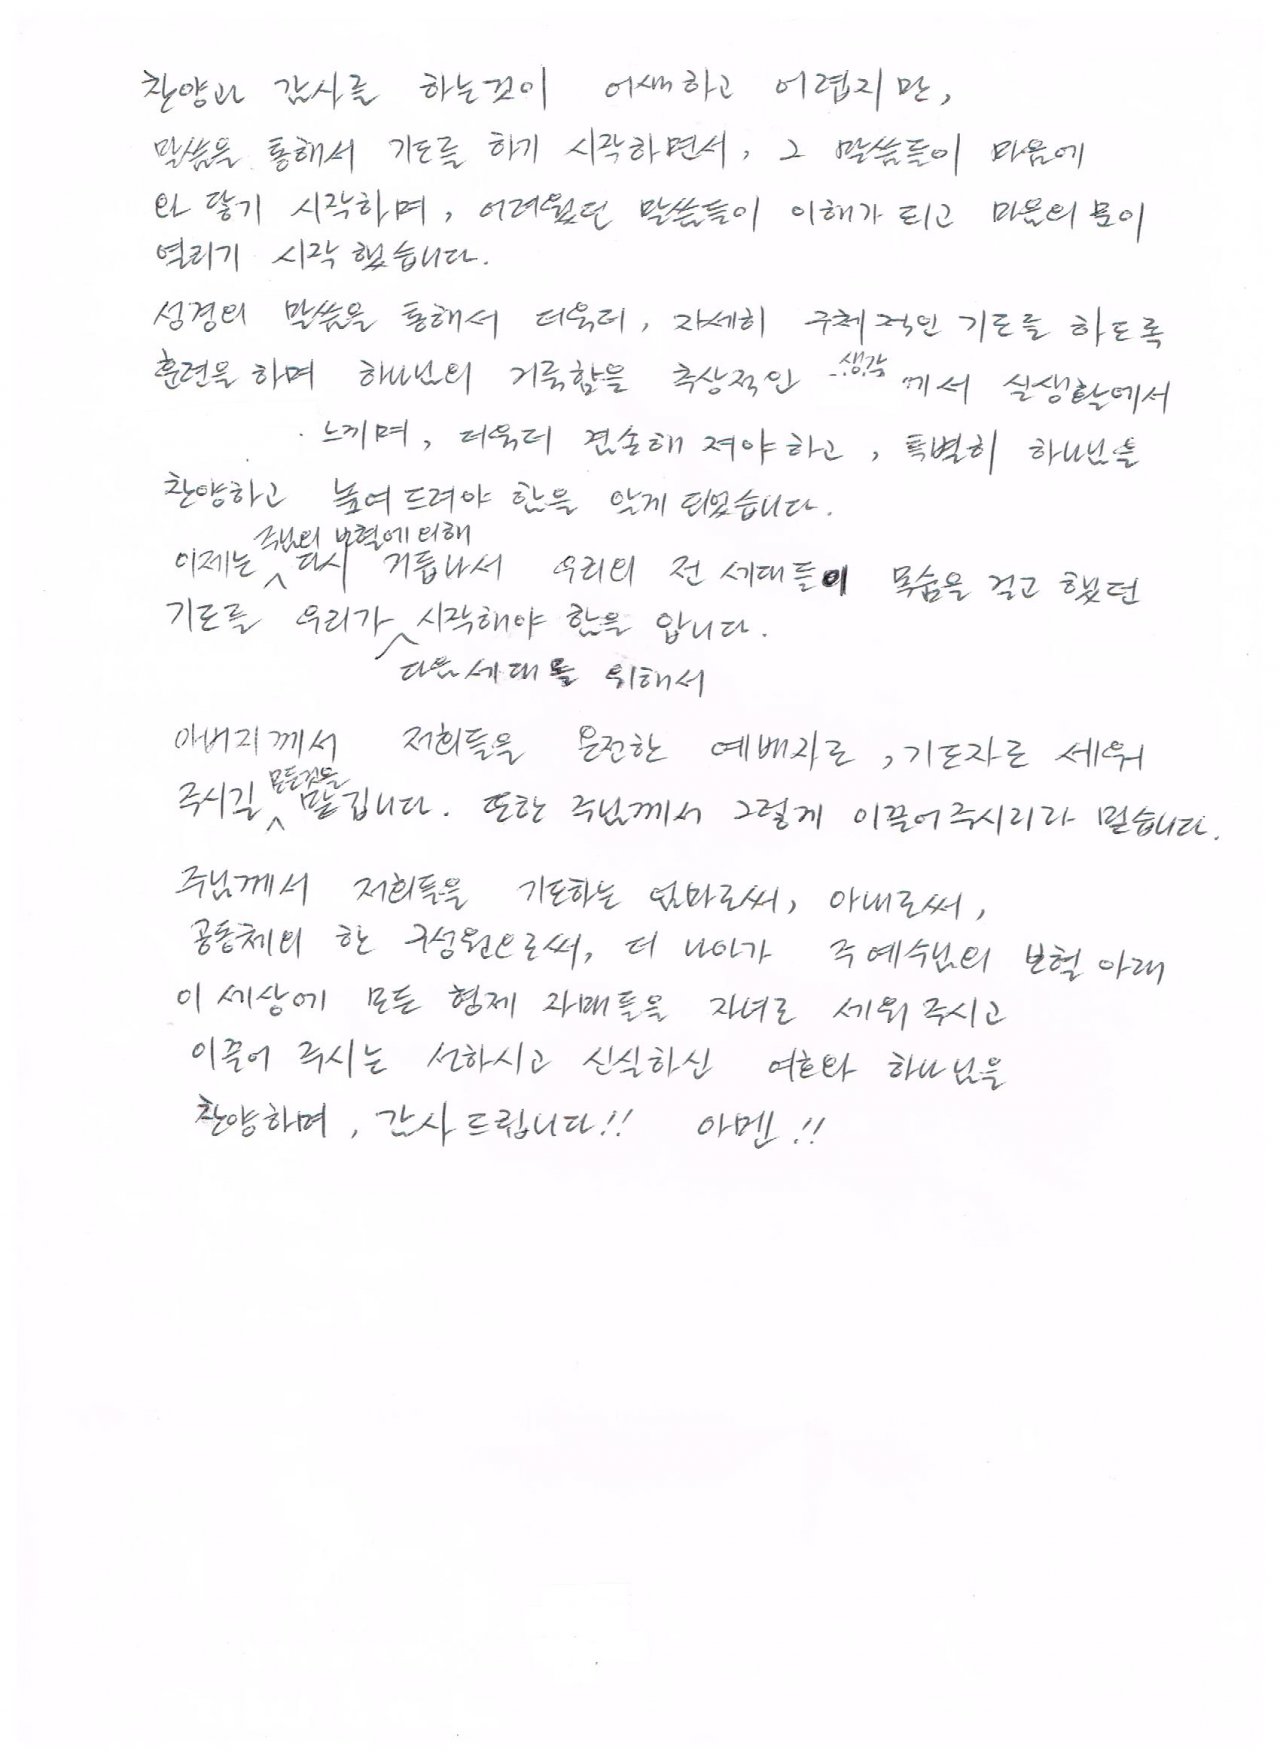 찬양과 감사를 하는것이 어색하고 어렵지만,
말씀을 통해서 기도를 하기 시작하면서, 그 말씀들이 마음에
와 닿기 시작하며, 어려웠던 말씀들이 이해가 되고 마음의 문이
열리기 시작 했습니다.
성경의 말씀을 통해서 더욱더, 자세히 구체적인 기도를 하도록
훈련을 하며 하나님의 거룩함을 추상적인 생각 께서 실생활에서
느끼며, 더욱더 겸손해 져야하고, 특별히 하나님을
찬양하고 높여드려야 함을 알게 되었습니다.
주님의 보혈에 의해
이제는 다시 거듭나서 우리의 전 세대들이 목숨을 걸고 했던
기도를 우리가 시작해야 함을 압니다.
다음세대를 위해서
아버지께서 저희들을 온전한 예배자로, 기도자로 세워
모든것을
주시길 맡깁니다. 또한 주님께서 그렇게 이끌어주시리라 믿습니다.
주님께서 저희들을 기도하는 엄마로써, 아내로써,
공동체의 한 구성원으로써, 더 나아가 주 예수님의 보혈 아래
이 세상에 모든 형제 자매들을 자녀로 세워 주시고
이끌어 주시는 선하시고 신실하신 여호와 하나님을
찬양하며, 감사드립니다!! 아멘!!